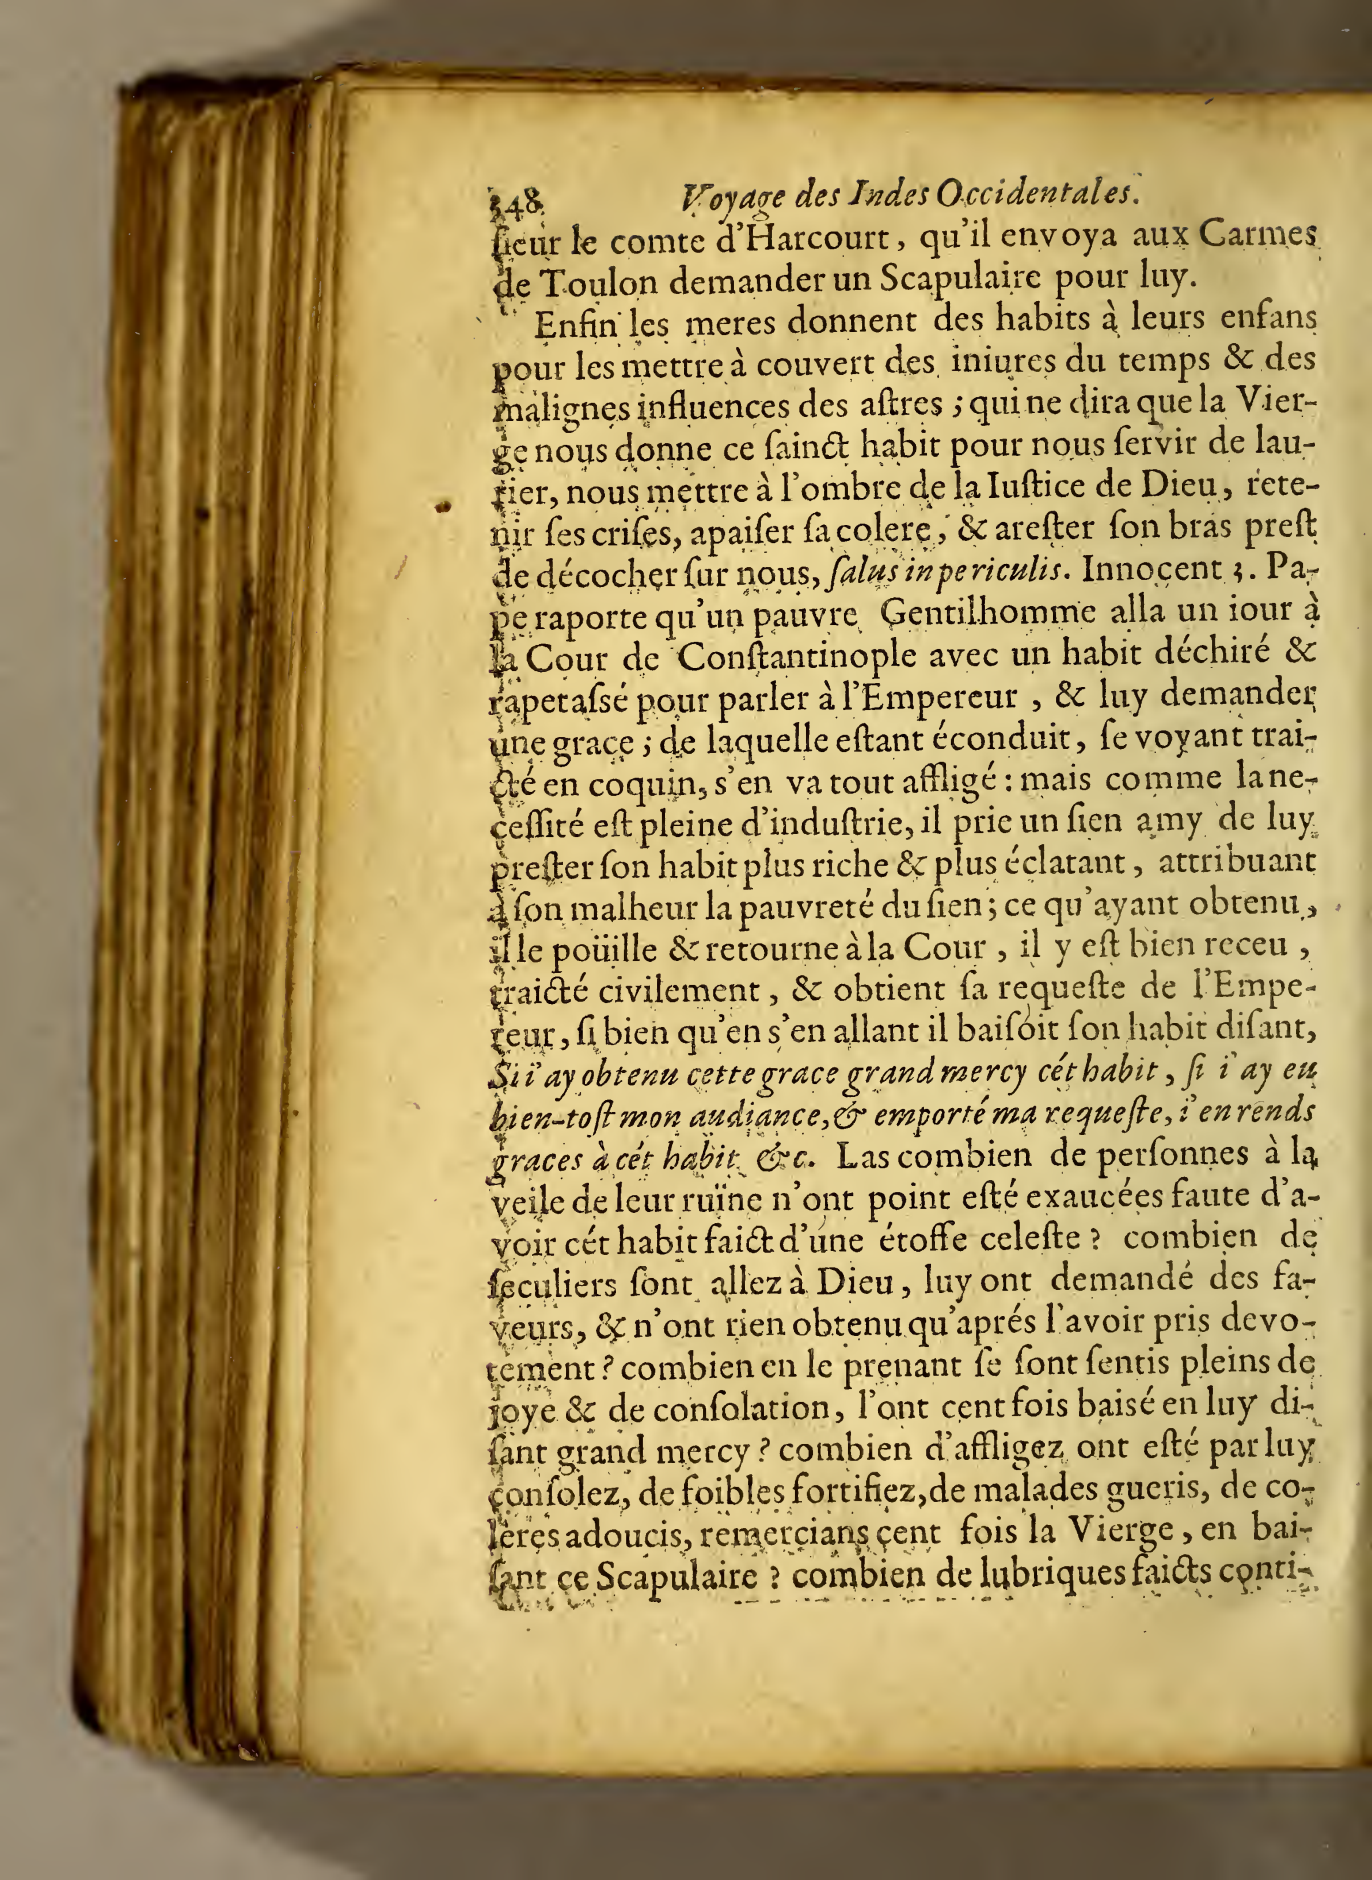 348 Voyage des Indes Occidentales.
ſieur le comte d'Harcourt, qu'il envoya aux Carmes
de Toulon demander un Scapulaire pour luy.
Enfin les meres donnent des habits à leurs enfans
pour les mettre à couvert des iniures du temps & des
malignes influences des aſtres ; qui ne dira que la Vier-
ge nous donne ce ſainct habit pour nous ſervir de lau-
rier, nous mettre à l'ombre de la Iuſtice de Dieu, rete-
nir ſes criſes, apaiſer ſa colere, & areſter ſon bras preſt
de décocher ſur nous, ſalus in periculis. Innocent 3. Pa-
pe raporte qu'un pauvre Gentilhomme alla un iour à
la Cour de Conſtantinople avec un habit déchiré &
rapetaſsé pour parler à l'Empereur , & luy demander
une grace ; de laquelle eſtant éconduit, ſe voyant trai-
cté en coquin, s'en va tout affligé : mais comme la ne-
ceſſité eſt pleine d'induſtrie, il prie un ſien amy de luy
preſter ſon habit plus riche & plus éclatant , attribuant
à ſon malheur la pauvreté du ſien ; ce qu'ayant obtenu,
il le poüille & retourne à la Cour , il y eſt bien receu ,
traicté civilement , & obtient ſa requeſte de l'Empe-
reur, ſi bien qu'en s'en allant il baiſoit ſon habit diſant,
Si i'ay obtenu cette grace grand mercy cét habit, ſi i'ay eu
bien-toſt mon audiance, & emporté ma requeſte, i'en rends
graces à cét habit &c. Las combien de perſonnes à la
veile de leur ruïne n'ont point eſté exaucées faute d'a-
voir cét habit faict d'une étoffe celeſte ? combien de
ſeculiers ſont allez à Dieu, luy ont demandé des fa-
veurs, & n'ont rien obtenu qu'aprés l'avoir pris devo-
tement ? combien en le prenant ſe ſont ſentis pleins de
joye & de conſolation, l'ont cent fois baisé en luy di-
ſant grand mercy ? combien d'affligez ont eſté par luy
conſolez, de foibles fortifiez, de malades gueris, de co-
leres adoucis, remercians cent fois la Vierge, en bai-
ſant ce Scapulaire ? combien de lubriques faicts conti-